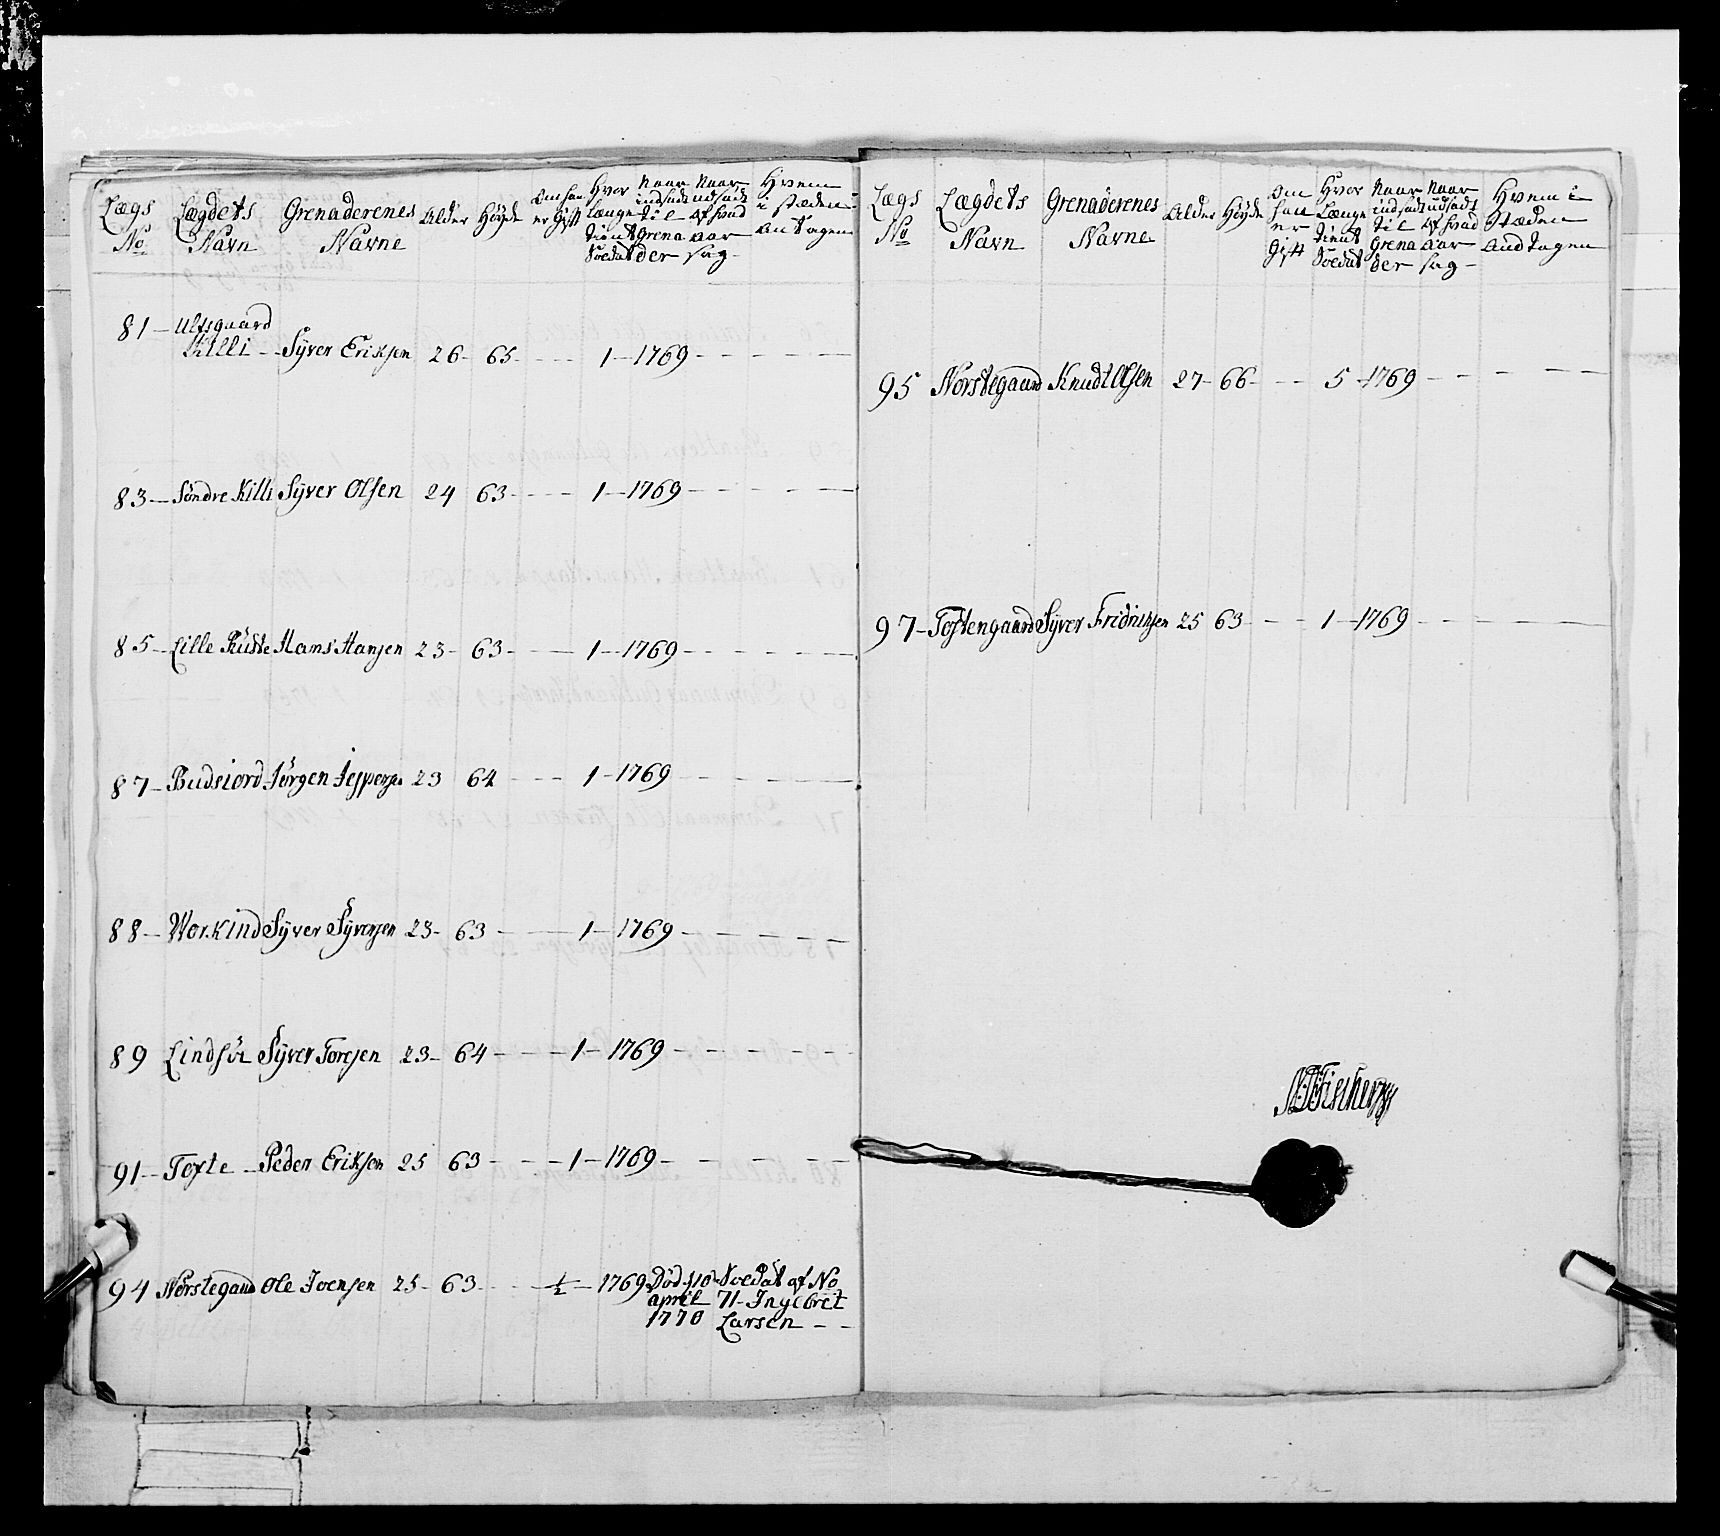 Lægs No | Lægdets Navn | Grenaderenes Navne | Alder | Höyde | Om han er Gift | Hvor Længe tient Soldat | Naar indsadt til Grenader | Naar udsadt af hvad Aarsag | Hvem i stæden Antagen
81 — Ulfsgaard
Killi — Syver Eriksen 26 - 65 - - - 1 - 1769 - - - -
83 — Söndre Killi Syver Olsen 24 63 - - - 1 - 1769 - - - -
85 — Lille Ruste Hans Hansen 23 - 63 - - - 1 - 1769 - - - -
87 — Budsiord Jörgen Jespersen 23 64 - - - 1 - 1769 - - - -
88 — Workind Syver Syversen 23 - 63 - - - 1 - 1769 - - - -
89 Lindsöe Syver Toresen 23 - 64 - - - 1 - 1769 - - - -
91 — Tofte — Peder Eriksen 25 63 - - - 1 - 1769 - - - -
94 Norstegaard Ole Joensen 25 - 63 - - - 1/2 - 1769 Död 10 Soldat af No
april 71 - Ingebret
1770 Larsen - -
Lægs No | Lægdets Navn | Grenaderenes Navne | Alder | Höyde | Om han er Gift | Hvor Længe tient Soldat | Naar indsadt til Grenader | Naar udsadt af hvad Aarsag | Hvem i Stæden Andtagen
95 Norstegaard Knudt Olsen 27 - 66 - - - 5 - 1769 - - - -
97 - Toftengaard Syver 25 63 - - - 1 - 1769 - - - -
Fischer